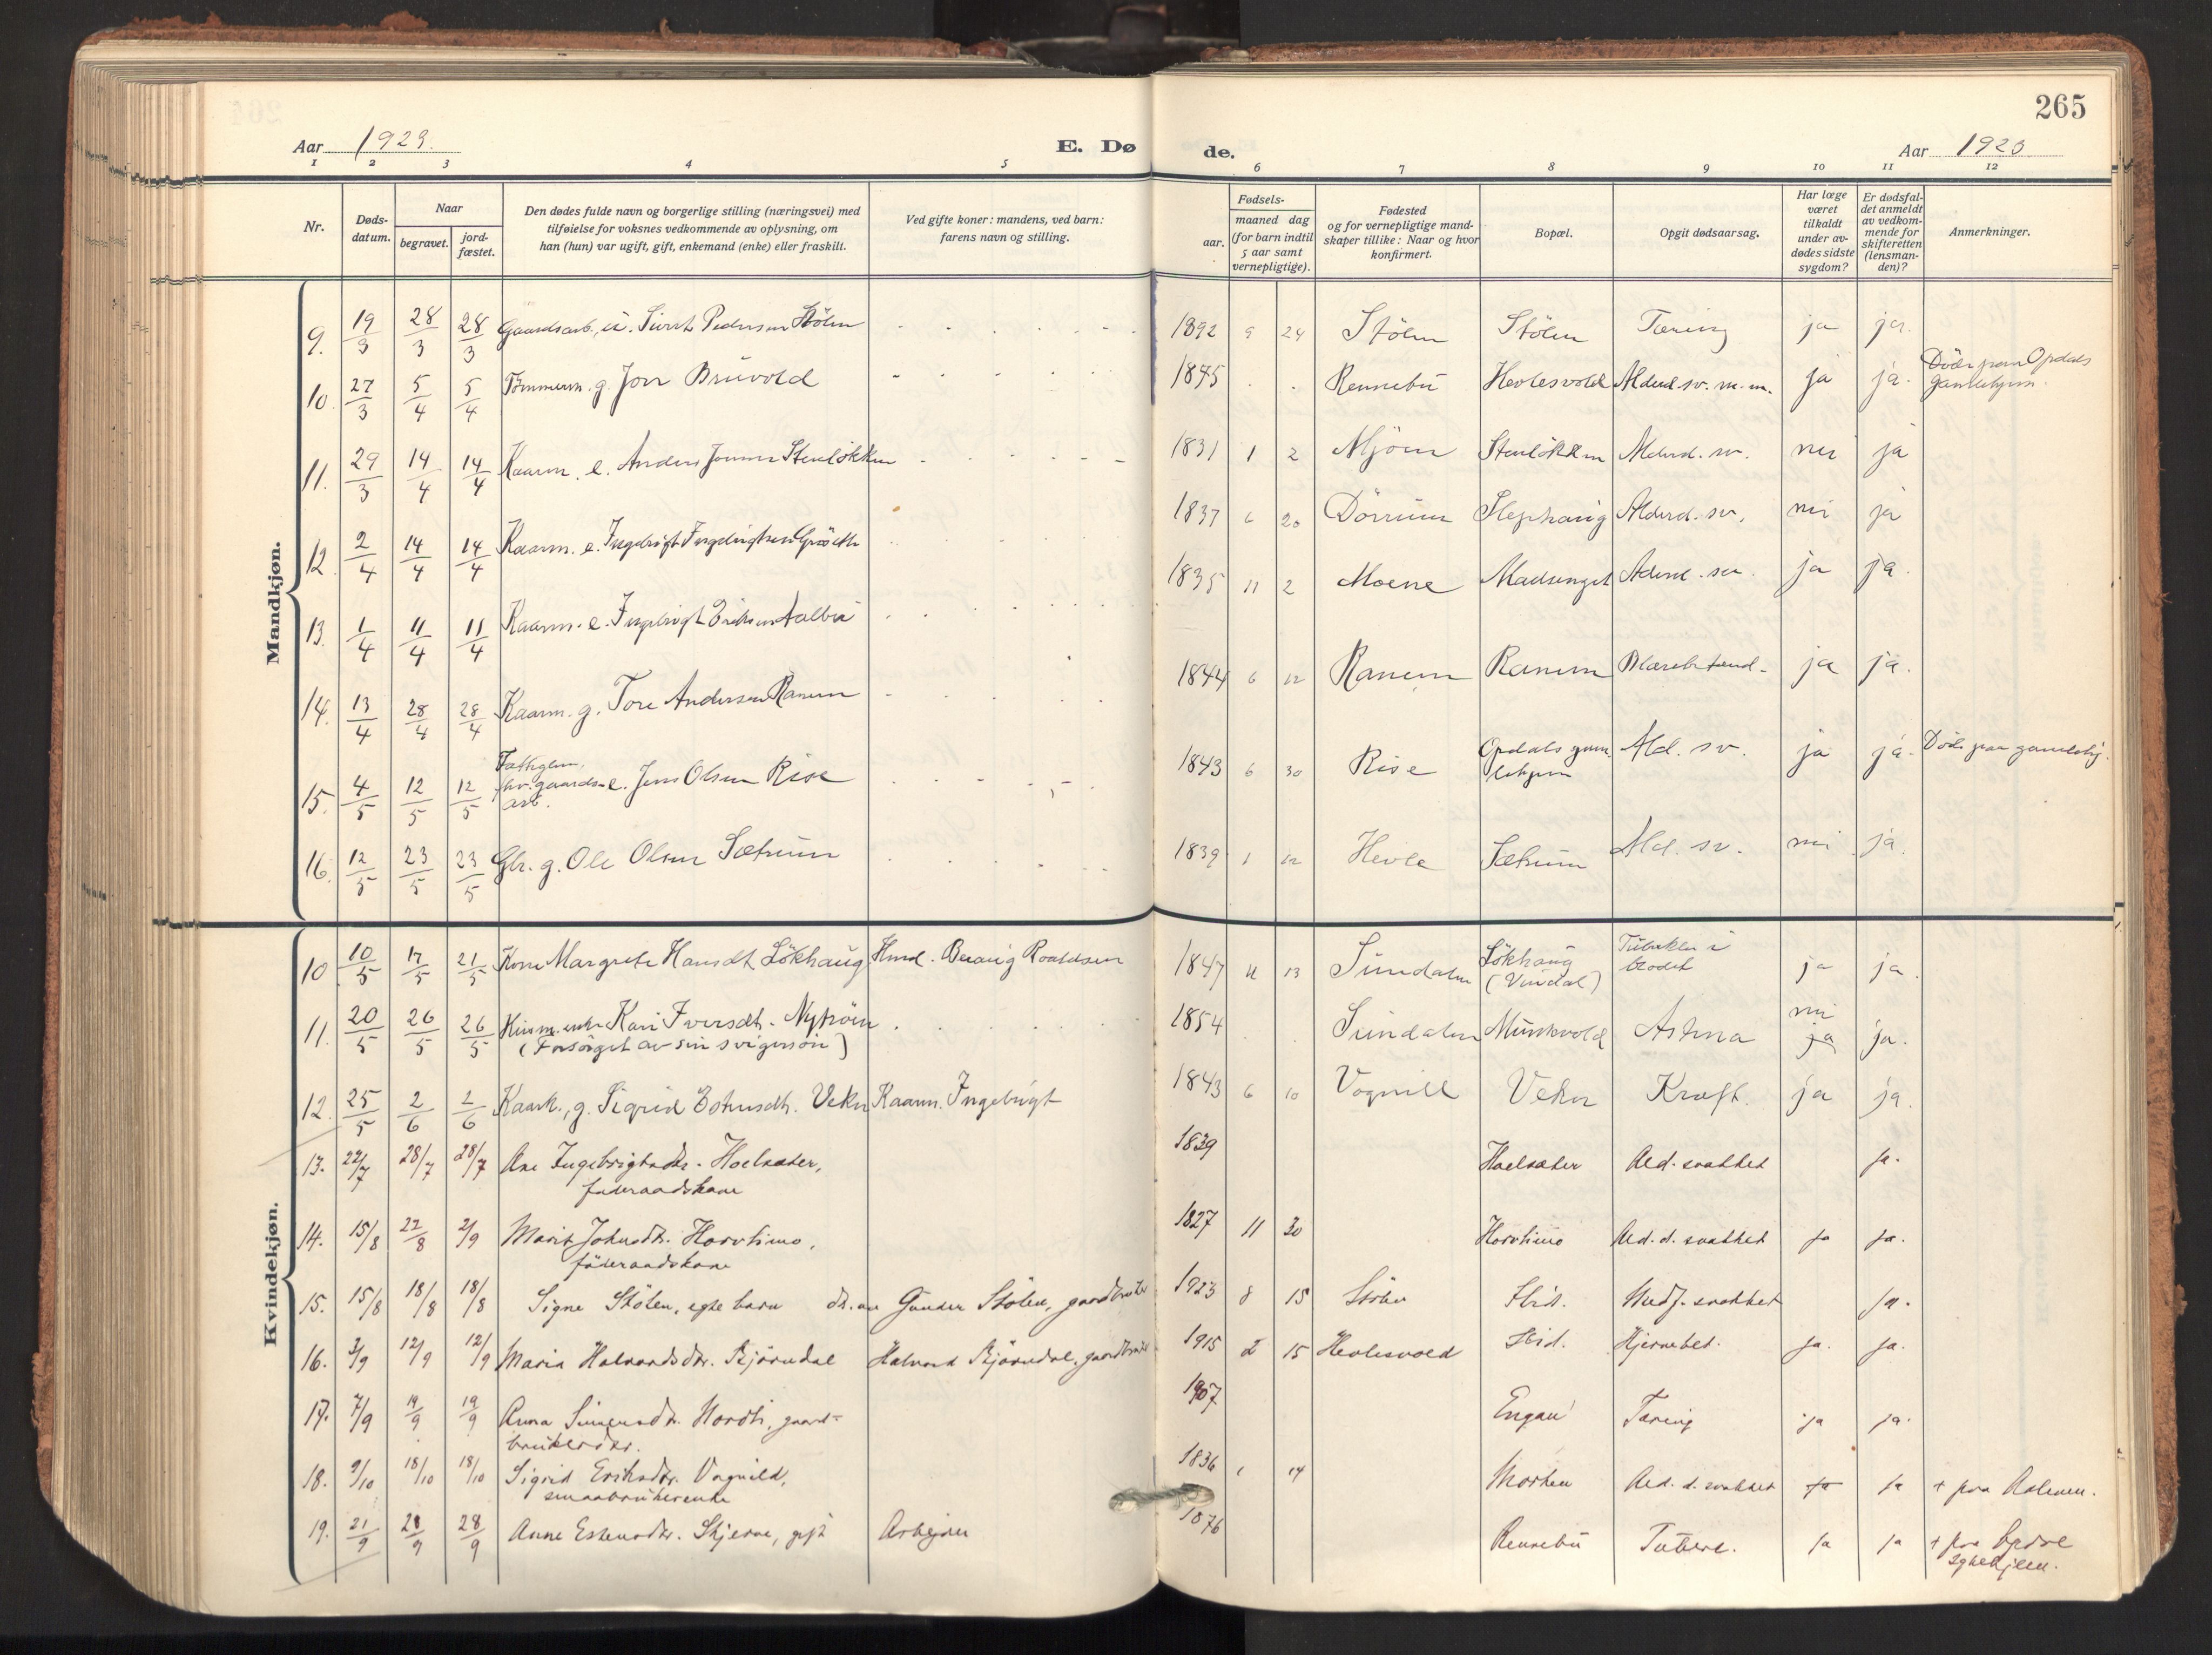 265
Aar 1923.
E. Dø
de.
Aar 1923
1 2 3 4 5 6 7 8 9 10 11 12
Nr.
Døds-
datum.
Naar
begravet.
jord-
fæstet.
Den dødes fulde navn og borgerlige stilling (næringsvei) med
tilføielse for voksnes vedkommende av oplysning, om
han (hun) var ugift, gift, enkemand (enke) eller fraskilt.
Ved gifte koner: mandens, ved barn:
farens navn og stilling.
Fødsels-
aar.
maaned dag
(for barn indtil
5 aar samt
vernepligtige).
Fødested
og for vernepligtige mand-
skaper tillike: Naar og hvor
konfirmert.
Bopæl.
Opgit dødsaarsag.
Har læge
været
tilkaldt
under av-
dødes sidste
sygdom?
Er dødsfal-
det anmeldt
av vedkom-
mende for
skifteretten
(lensman-
den)?
Anmerkninger.
Mandkjøn.
9. 19/3 28/3 28/3 Gaardsarb. u. Sivert Pedersen Stölen 1892 9 24 Stölen Stölen Tæring ja ja.
10. 27/3 5/4 5/4 Tömmerm. g. Jon Bruvold 1845 Rennebu Hevlesvold Alderd. sv. m.m. ja ja. Döde paa Opdals
gamlehjem.
11. 29/3 14/4 14/4 Kaarm. e. Anders Jonsen Stenlökken 1831 1 2 Mjöen Stenlökken Alderd. sv. nei ja
12 2/4 14/4 14/4 Kaarm. e. Ingebrigt Ingebrigtsen 1837 6 20 Dörrum Slephaug Alderd. sv. nei ja
13. 1/4 11/4 11/4 Kaarm. e. Ingebrigt Eriksen Aalbu 1835 11 2 Moene Madsenget Alderd. sv. ja ja.
14. 13/4 28/4 28/4 Kaarm. g. Tore Andersen Ranum 1844 6 12 Ranum Ranum ja ja.
15. 4/5 12/5 12/5 Fattiglem,
fhv. gaards- e. Jens Olsen Rise 1843 6 30 Rise Opdals gam-
lehjem Ald. sv. ja ja. Döde paa gamlehj.
arb.
16. 12/5 23/5 23/5 Gbr. g. Ole Olsen Sætrum 1839 1 12 Hevle Sætrum Ald. sv. nei ja.
Kvindekjøn.
10 10/5 17/5 21/5 Kone Margrete Hansdt. Lökhaug Hmd. Roaldsen 1847 11 13 Sundalen Lökhaug
(Vindal) Tuberkler i
blodet ja ja.
11. 20/5 26/5 26/5 Husm. enke Kari Iversdt. Nytröen
(Forsörget av sin svigersön) 1854 Sundalen Munkvold Astma nei
ja ja.
12. 25/5 2/6 2/6 Kaark., g. Sigrid Estensdt. Veken Kaarm. Ingebrigt 1843 6 10 Vognill Veken Kræft. ja ja.
13. 22/7 28/7 28/7 Ane Ingebrigtsdtr. Hoelsæter,
föderaadskone 1839 Hoelsæter Ald. svakhet ja.
14. 15/8 22/8 2/9 Marit Johnsdtr. Horvlimo,
föderaadskone 1827 11 30 Horvlimo Ald. d. svakhet ja ja.
15. 15/8 18/8 18/8 Signe Stölen, egte barn dtr. av Gunder Stölen, gaardbruker 1923 8 15 Stölen Ibid. Medf. svakhet ja.
16. 3/9 12/9 12/9 Maria Halvardsdtr. Bjørndal Halvard Bjørndal, gaardbruker 1915 2 15 Hevlesvold Ibid. Hjernebet. ja. ja.
17. 7/9 19/9 19/9 Anna Simensdtr. Nordli, gaard-
brukerdtr. 1907 Engan Tæring ja ja.
18. 9/10 18/10 18/10 Sigrid Eriksdtr. Vognild,
smaabrukerenke 1836 1 14 Morken Ald. d. svakhet ja ja
19. 21/9 28/9 28/9 Anne Estensdtr. Skjerve, gift Arbejder 1876 Rennebu Tuberc. ja ja + paa Opdal
sykehjem.